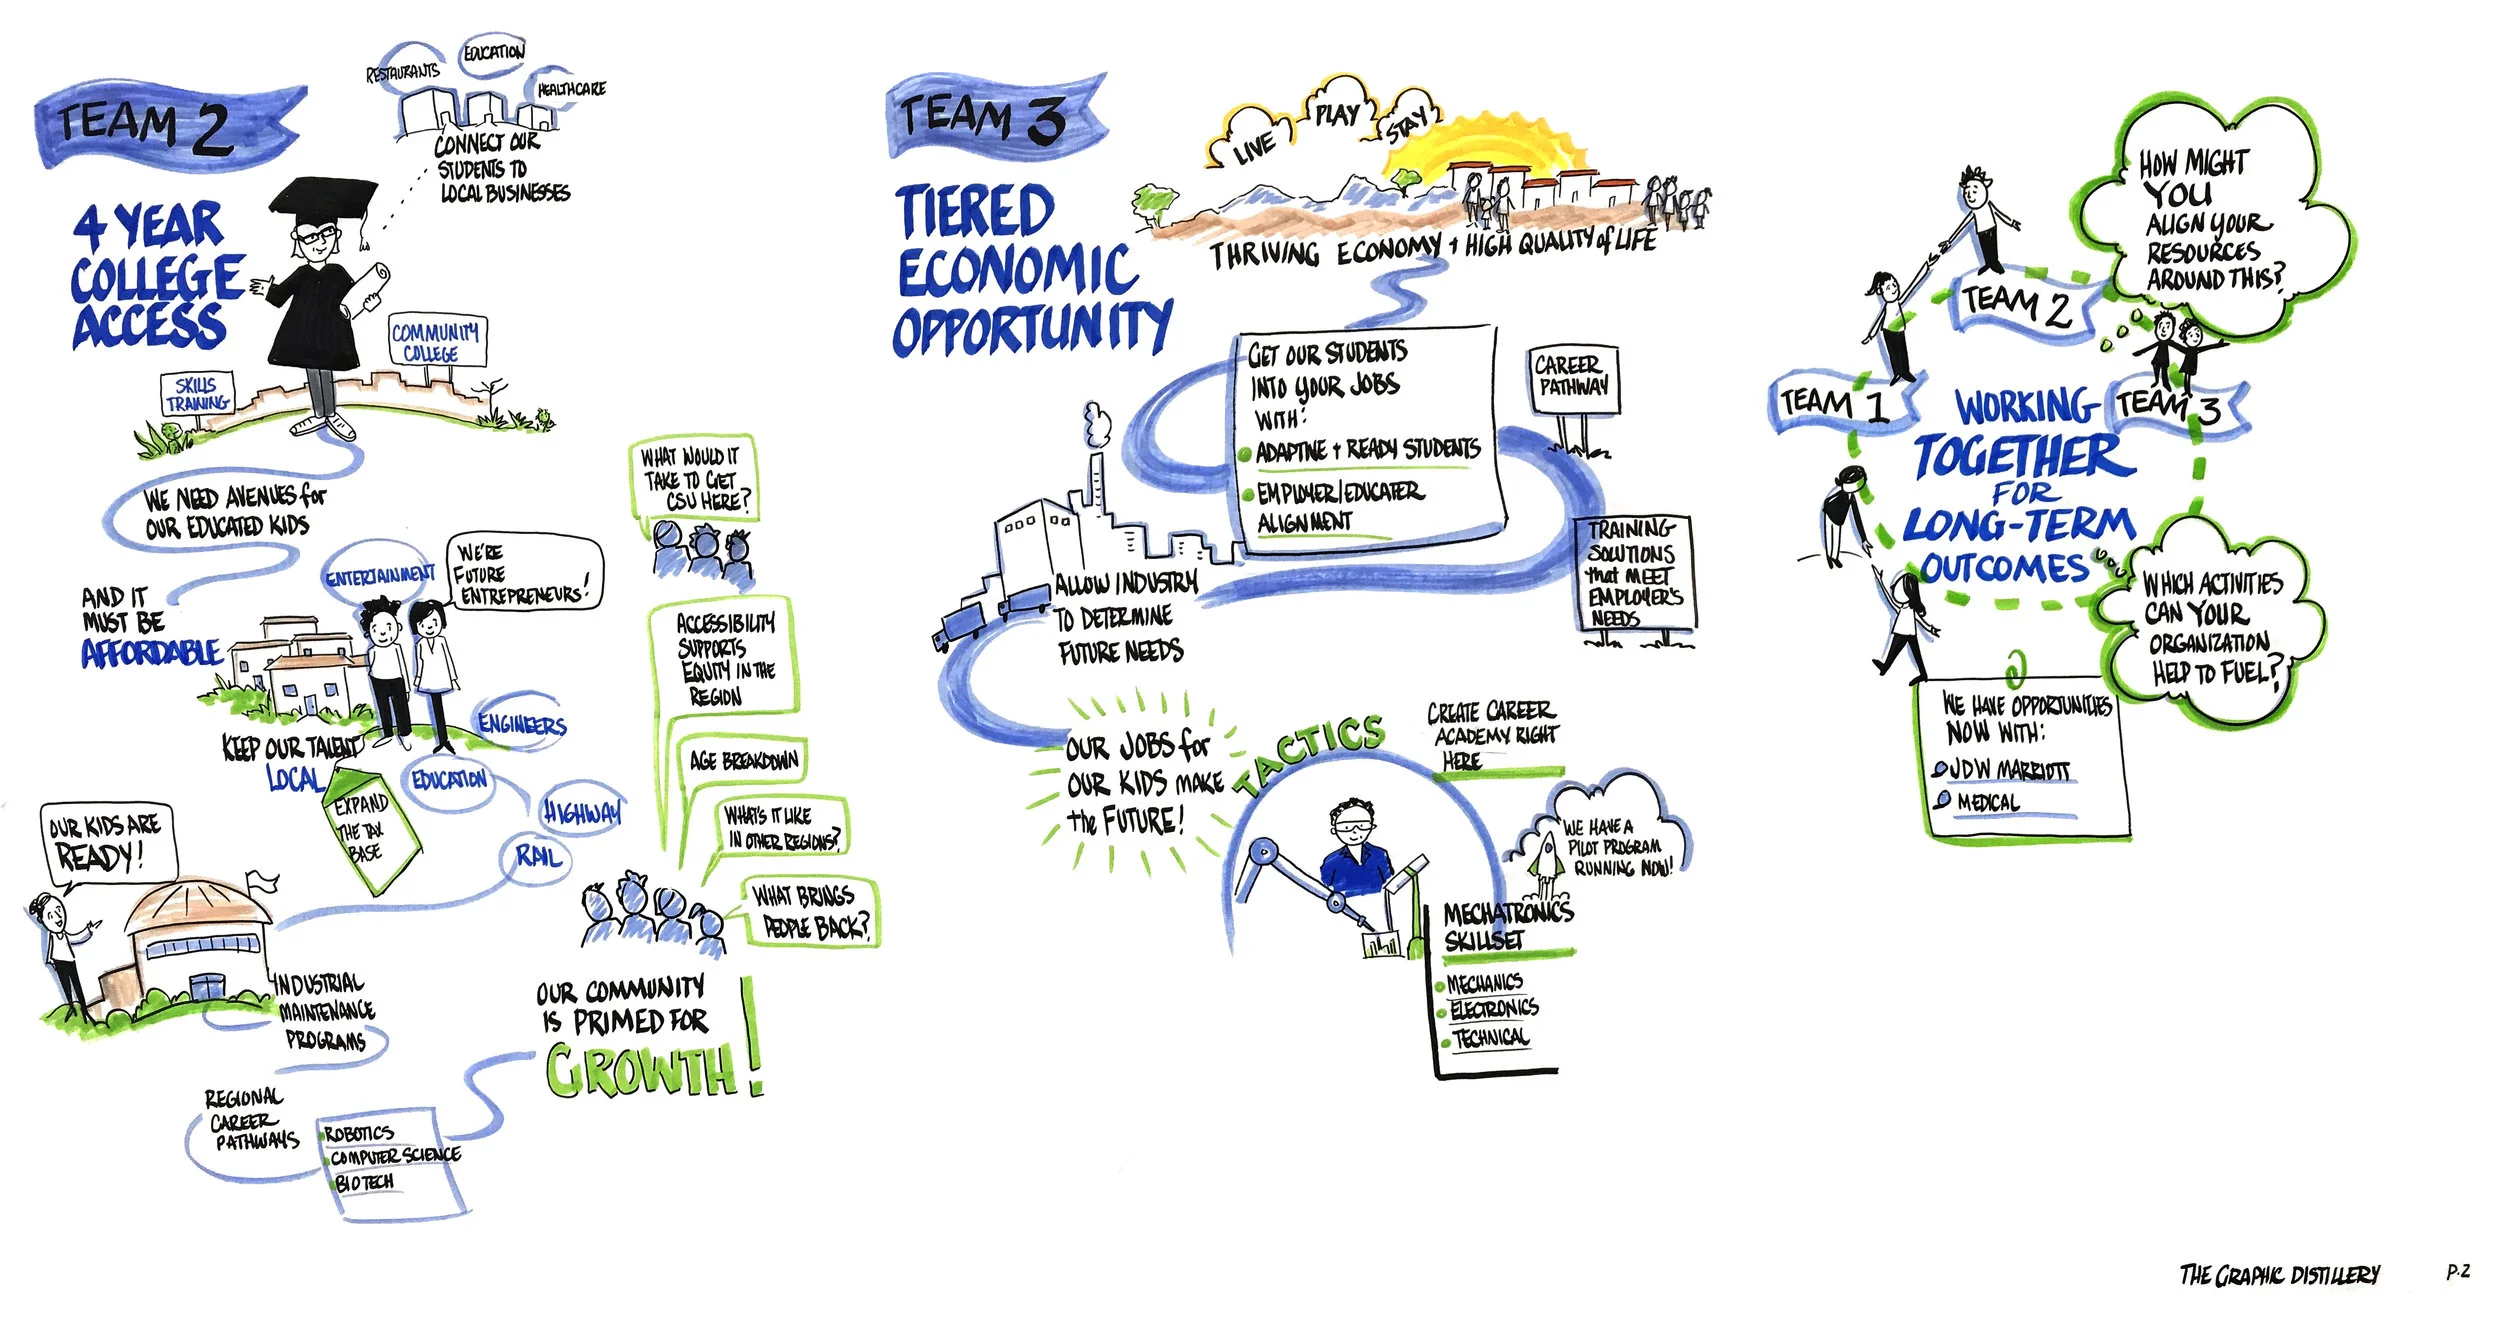 TEAM 2
4 YEAR
COLLEGE
ACCESS
RESTAURANTS
EDUCATION
HEALTHCARE
CONNECT OUR
STUDENTS TO
LOCAL BUSINESSES
SKILLS
TRAINING
COMMUNITY
COLLEGE
WE NEED AVENUES for
OUR EDUCATED KIDS
AND IT
MUST BE
AFFORDABLE
ENTERTAINMENT
WE'RE
FUTURE
ENTREPRENEURS!
KEEP OUR TALENT
LOCAL
EXPAND
THE TAX
BASE
ENGINEERS
EDUCATION
HIGHWAY
RAIL
OUR KIDS ARE
READY!
INDUSTRIAL
MAINTENANCE
PROGRAMS
REGIONAL
CAREER
PATHWAYS
ROBOTICS
COMPUTER SCIENCE
BIOTECH
WHAT WOULD IT
TAKE TO GET
CSU HERE?
ACCESSIBILITY
SUPPORTS
EQUITY IN THE
REGION
AGE BREAKDOWN
WHAT'S IT LIKE
IN OTHER REGIONS?
WHAT BRINGS
PEOPLE BACK?
OUR COMMUNITY
IS PRIMED FOR
GROWTH!
TEAM 3
TIERED
ECONOMIC
OPPORTUNITY
LIVE
PLAY
STAY
THRIVING ECONOMY + HIGH QUALITY of LIFE
GET OUR STUDENTS
INTO YOUR JOBS
WITH:
ADAPTIVE + READY STUDENTS
EMPLOYER/EDUCATER
ALIGNMENT
CAREER
PATHWAY
TRAINING
SOLUTIONS
that MEET
EMPLOYER'S
NEEDS
ALLOW INDUSTRY
TO DETERMINE
FUTURE NEEDS
OUR JOBS for
OUR KIDS MAKE
the FUTURE!
TACTICS
CREATE CAREER
ACADEMY RIGHT
HERE
WE HAVE A
PILOT PROGRAM
RUNNING NOW!
MECHATRONICS
SKILLSET
MECHANICS
ELECTRONICS
TECHNICAL
HOW MIGHT
YOU
ALIGN YOUR
RESOURCES
AROUND THIS?
TEAM 2
TEAM 1
TEAM 3
WORKING
TOGETHER
FOR
LONG-TERM
OUTCOMES
WHICH ACTIVITIES
CAN YOUR
ORGANIZATION
HELP TO FUEL?
WE HAVE OPPORTUNITIES
NOW WITH:
JDW MARRIOTT
MEDICAL
THE GRAPHIC DISTILLERY
P.2